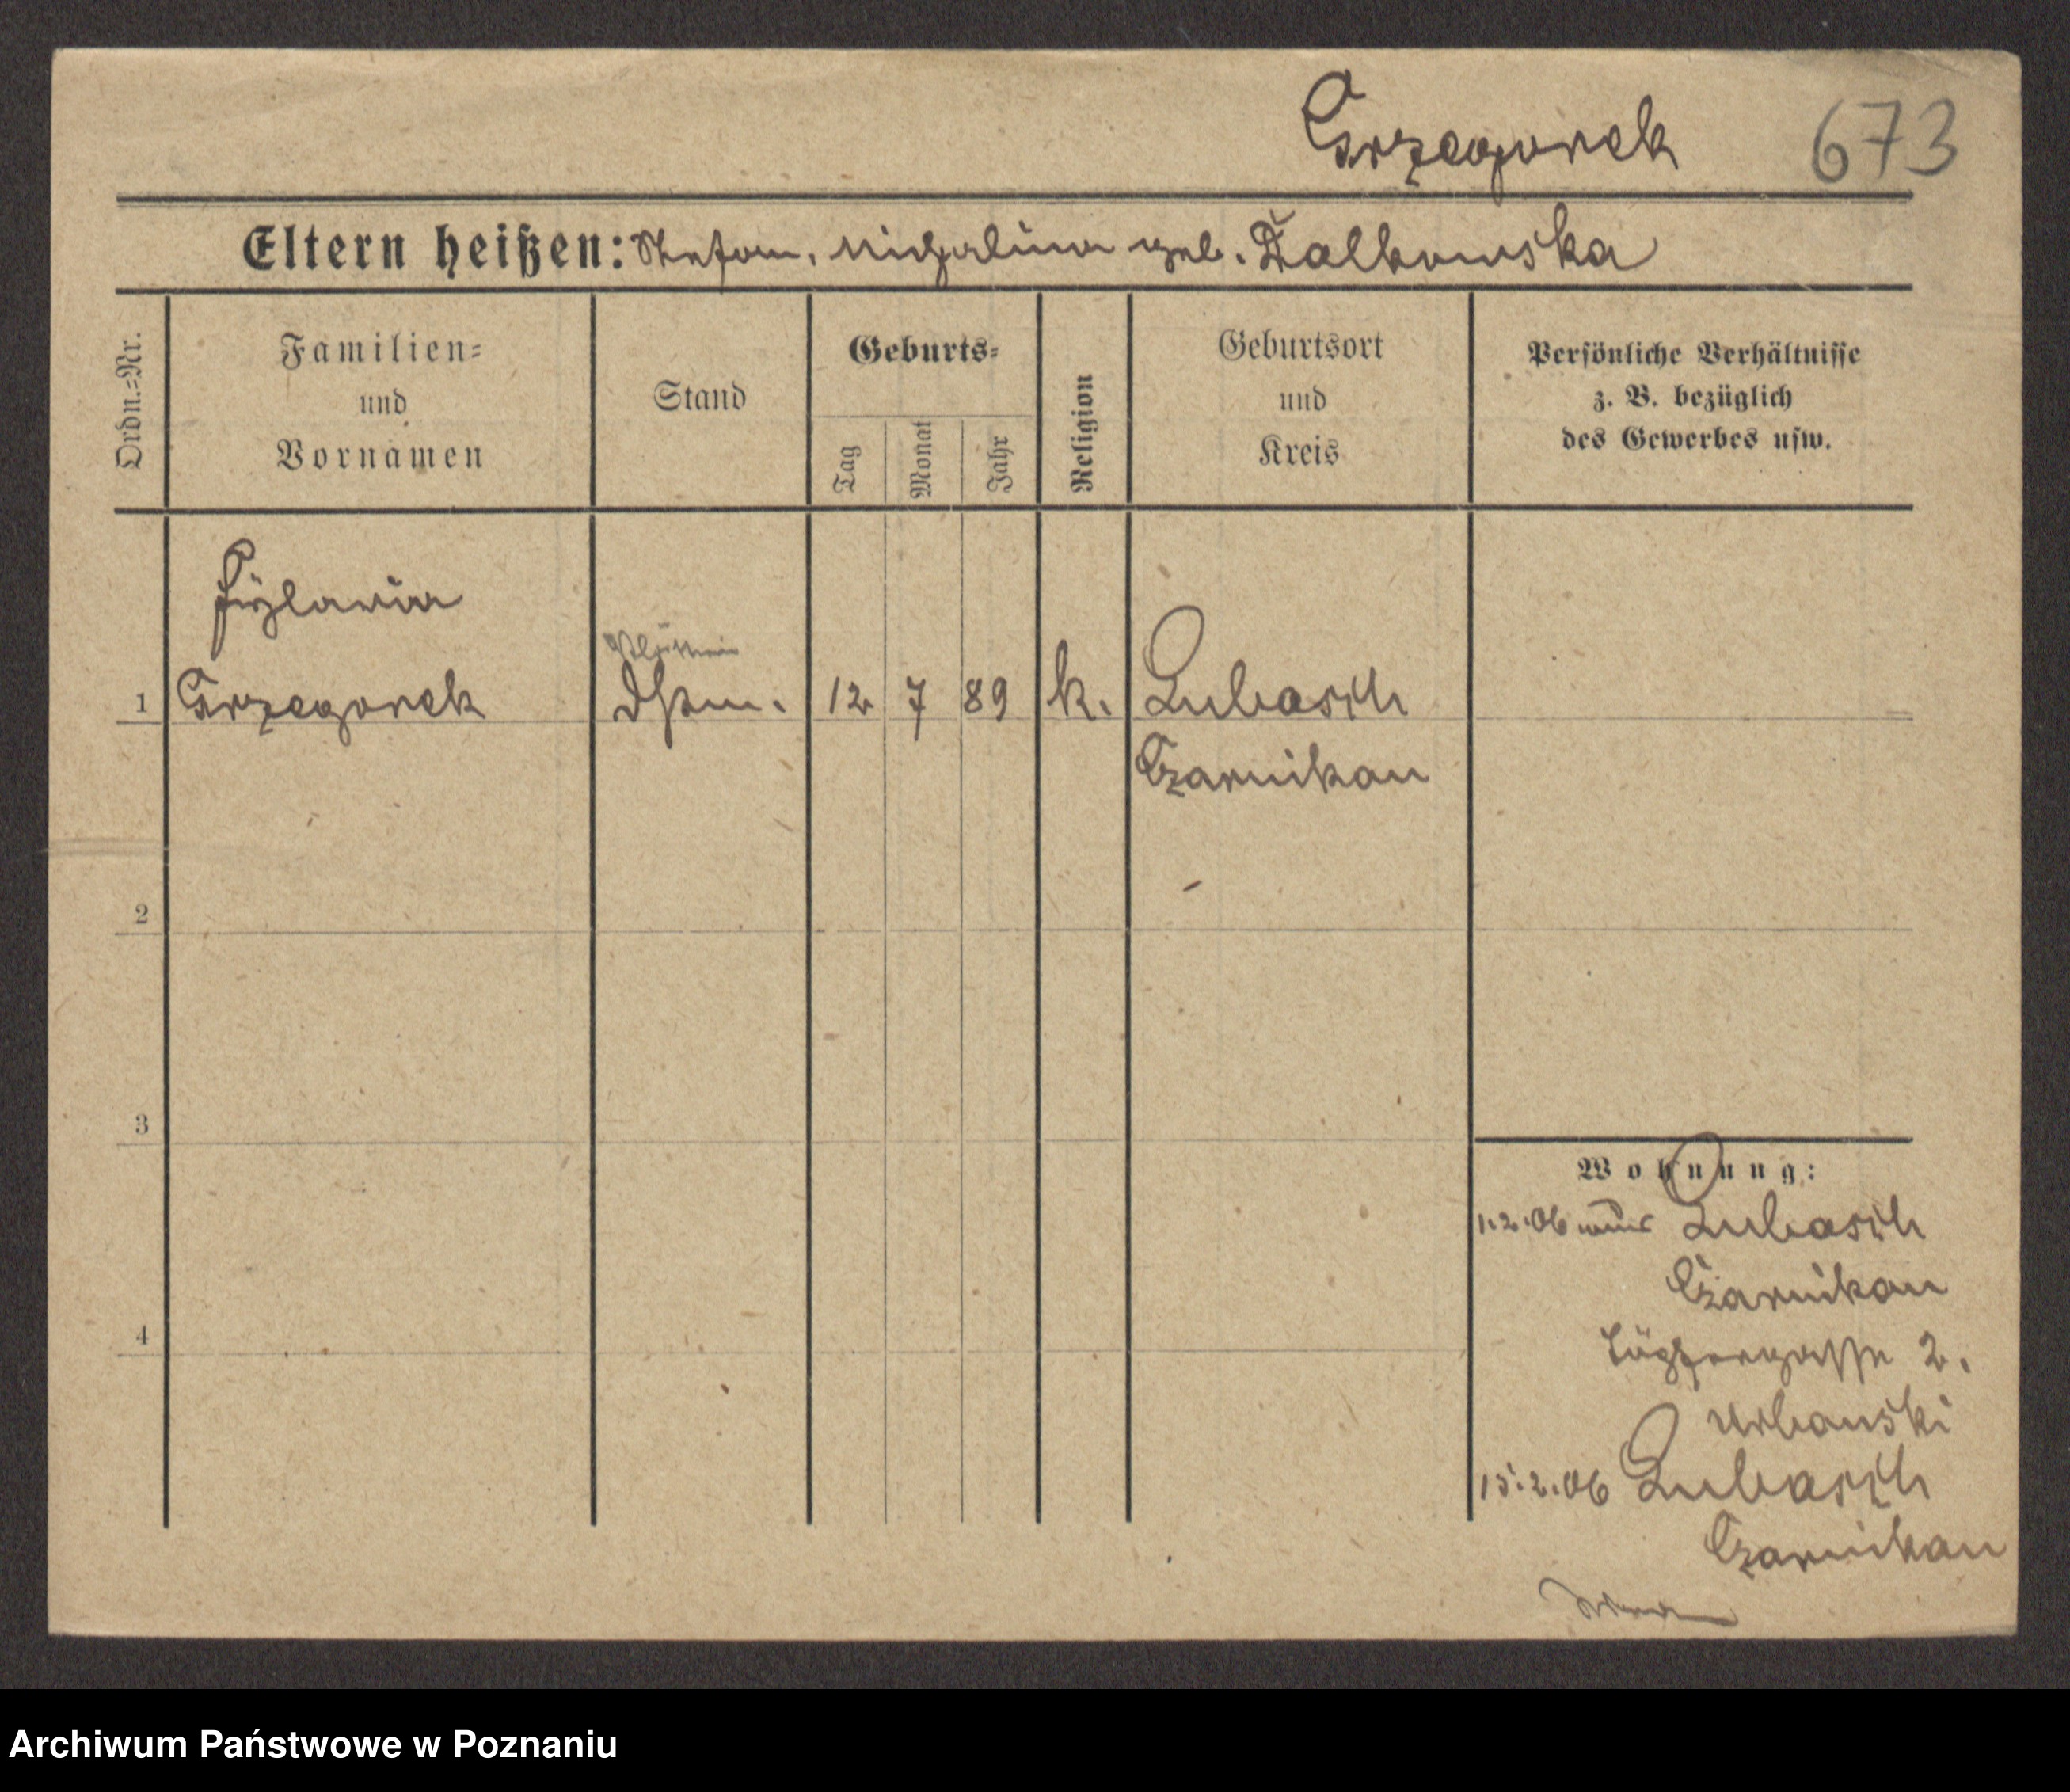 Grzegorek 673
Eltern heißen: Stefan, Michalina geb. Dalkowska
Ordn.=Nr.
Familien=
und
Vornamen
Stand
Geburts=
Tag
Monat
Jahr
Religion
Geburtsort
und
Kreis
Persönliche Verhältnisse
z. B. bezüglich
des Gewerbes usw.
1 Grzegorek 12 7 89 k. Lubasch
Czarnikau
2
3
4
Wohnung:
1.2.06 Lubasch
Czarnikau
2.
Urbanski
15.2.06 Lubasch
Czarnikau
Archiwum Państwowe w Poznaniu